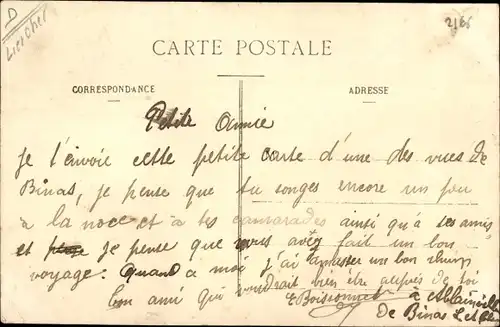 D
2166
CARTE POSTALE
CORRESPONDANCE
ADRESSE
Petite Amie
Je t'envoie cette petite carte d'une des vues de
Binas, je pense que tu songes encore un peu
à la noce et à tes camarades ainsi qu'à tes amis
et je pense que vous avez fait un bon
voyage. Quand a moi j'ai amasser un bon
Ton ami qui voudrait bien être auprès de toi
E Boissonnet à
de Binas L et Ch